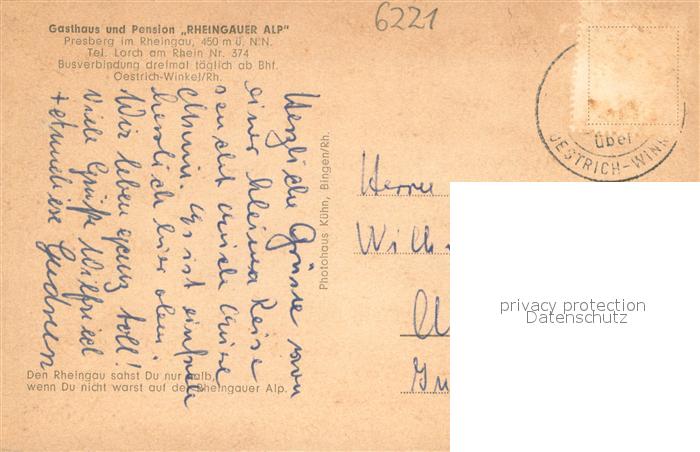 6221
Gasthaus und Pension „RHEINGAUER ALP"
Presberg im Rheingau, 450 m ü. N.N.
Tel. Lorch am Rhein Nr. 374
Busverbindung dreimal täglich ab Bhf.
Oestrich-Winkel/Rh.
über
OESTRICH-WINK
Herzliche Grüsse von
einer kleinen Reise
sendet
Es ist einfach
herrlich hier oben.
Wir leben ganz toll!
Viele Grüße Wilfried
+ Gudrun
Photohaus Kühn, Bingen/Rh.
Herrn
Wilh
privacy protection
Datenschutz
Den Rheingau sahst Du nur halb,
wenn Du nicht warst auf der Rheingauer Alp.